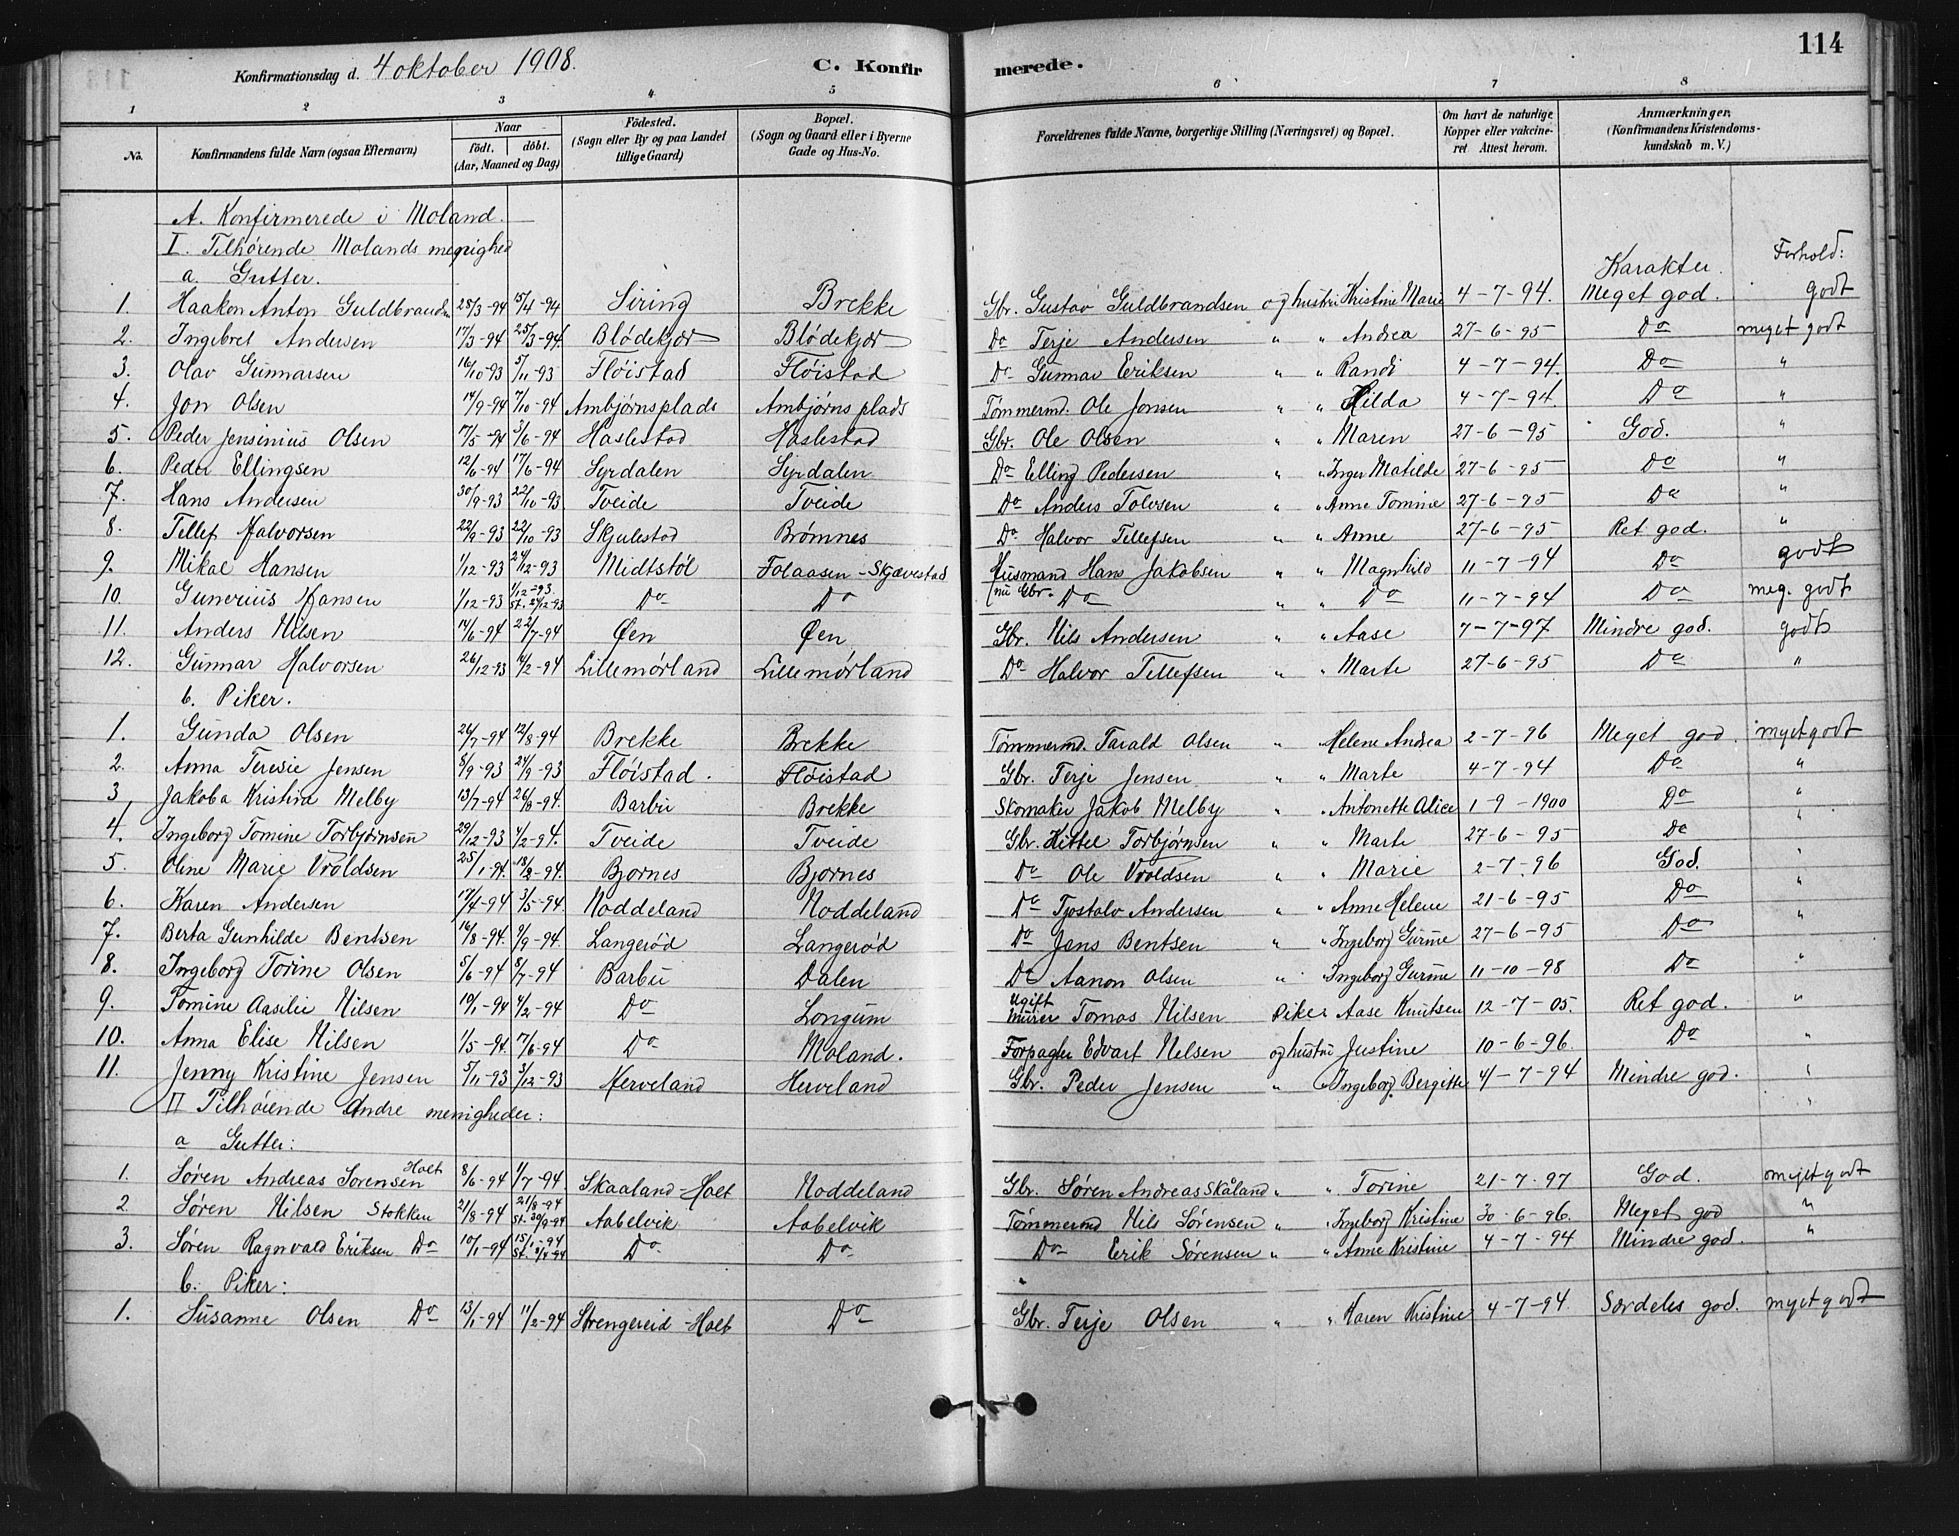 114
Konfirmationsdag d. 4 oktober 1908. C. Konfirmerede.
1 2 3 4 5 6 7 8
No. Konfirmandens fulde Navn (ogsaa Efternavn) Naar født. døbt. (Aar, Maaned og Dag) Fødested. (Sogn eller By og paa Landet tillige Gaard) Bopæl. (Sogn og Gaard eller i Byerne Gade og Hus-No. Forældrenes fulde Navne, borgerlige Stilling (Næringsvei) og Bopæl. Om havt de naturlige Kopper eller vakcineret Attest herom. Anmærkninger. (Konfirmandens Kristendomskundskab m. V.)
A. Konfirmerede i Moland.
I. Tilhørende Molands menighed
a. Gutter. Karakter. Forhold:
1. Haakon Anton Guldbrandsen 28/3-94 15/4-94 Siring Brekke Gbr. Gustav Guldbrandsen og hustru Kristine Marie 4-7-94. Meget god. godt
2. Ingebret Andersen 17/3-94 25/3-94 Blødekjær Blødekjær Do Terje Andersen " " Andrea 27-6-95 Do meget godt
3. Olav Gunnarsen 16/10-93 5/11-93 Fløistad Fløistad Do Gunnar Eriksen " " Randi 4-7-94. Do "
4. Jon Olsen 14/9-94 7/10-94 Ambjørnsplads Ambjørnsplads Tømmermd. Ole Jonsen " " Hilda 4-7-94. Do "
5. Peder Jensinius Olsen 17/5-94 3/6-94 Haslestad Haslestad Gbr. Ole Olsen " " Maren 27-6-95 God. "
6. Peder Ellingsen 12/6-94 17/6-94 Syrdalen Syrdalen Do Elling Pedersen " " Inger Matilde 27-6-95 Do "
7. Hans Andersen 30/9-93 22/10-93 Tveide Tveide Do Anders Tolvsen " " Anne Tomine 27-6-95 Do "
8. Tellef Halvorsen 22/9-93 22/10-93 Skjulestad Brømnes Do Halvor Tellefsen " " Anne 27-6-95 Ret god. "
9. Mikal Hansen 1/12-93 24/12-93 Midtstøl Folaasen-Skjævestad Husmand Hans Jakobsen " " Magnhild 11-7-94 Do godt
10. Gunerius Hansen 1/12-93 1/12-93 St. 24/12-93 Do Do (nu Gbr. Do " " Do 11-7-94 Do meg. godt
11. Anders Nilsen 14/6-94 22/7-94 Øen Øen Gbr. Nils Andersen " " Aase 7-7-97 Mindre god. godt
12. Gunnar Halvorsen 26/12-93 14/2-94 Lillemørland Lillemørland Do Halvor Tellefsen " " Marte 27-6-95 Do "
b. Piker.
1. Gunda Olsen 24/7-94 12/8-94 Brekke Brekke Tømmermd. Tarald Olsen " Helene Andrea 2-7-96 Meget god. myet godt
2. Anna Teresie Jensen 8/9-93 24/9-93 Fløistad. Fløistad Gbr. Terje Jensen " " Marte 4-7-94 Do "
3. Jakoba Kristina Melby 13/7-94 26/8-94. Barbu Brekke Skomaker Jakob Melby " " Antonette Alice 1-9-1900 Do "
4. Ingeborg Tomine Torbjørnsen 29/12-93 4/2-94. Tveide Tveide Gbr. Kittel Torbjørnsen " " Marte 27-6-95 Do "
5. Oline Marie Vroldsen 25/1-94. 18/2-94. Bjornes Bjornes Do Ole Vroldsen " " Marie 2-7-96 God. "
6. Karen Andersen 17/4-94 3/5-94. Noddeland Noddeland Do Tjostolv Andersen " " Anne Helene 21-6-95 Do "
7. Berta Gunhilde Bentsen 16/8-94. 9/9-94. Langerød Langerød Do Jens Bentsen " " Ingeborg Gurine 27-6-95 Do "
8. Ingeborg Torine Olsen 5/6-94 8/7-94 Barbu Dalen Do Aanon Olsen " " Ingeborg Gurine 11-10-98 Do "
9. Tomine Aasilie Nilsen 10/1-94 4/2-94 Do Longum Ugift Murer Tomas Nilsen Piker Aase Knutsen 12-7-05. Ret god. "
10. Anna Elise Nilsen 1/5-94. 17/6-94 Do Moland. Forpagter Edvart Nilsen og hustru Justine 10-6-96. Do "
11. Jenny Kristine Jensen 5/11-93 3/12-93 Herveland Herveland Gbr. Peder Jensen " " Ingeborg Bergitte 4-7-94 Mindre god. "
II Tilhørende Andre menigheder:
a Gutter:
1. Søren Andreas Sorensen Holt 8/6-94 1/7-94. Skaaland-Holt Noddeland Gbr. Søren Andreas Skåland " " Torine 21-7-97 God. myet godt
2. Søren Nilsen Stokken 21/8-94 21/8-94 St. 30/9-94 Aabelvik Aabelvik Tømmermd Nils Sørensen " " Ingeborg Kristine 30-6-96. Meget god "
3. Søren Ragnvald Eriksen Do 10/1-94 15/1-94 Do Do Do Erik Sørensen " " Anne Kristine 4-7-94 Mindre god. "
b. Piker:
1. Susanne Olsen Do 13/1-94 11/2-94 Strengereid-Holt Do Gbr. Terje Olsen " " Karen Kristine 4-7-94. Særdeles god. myet godt